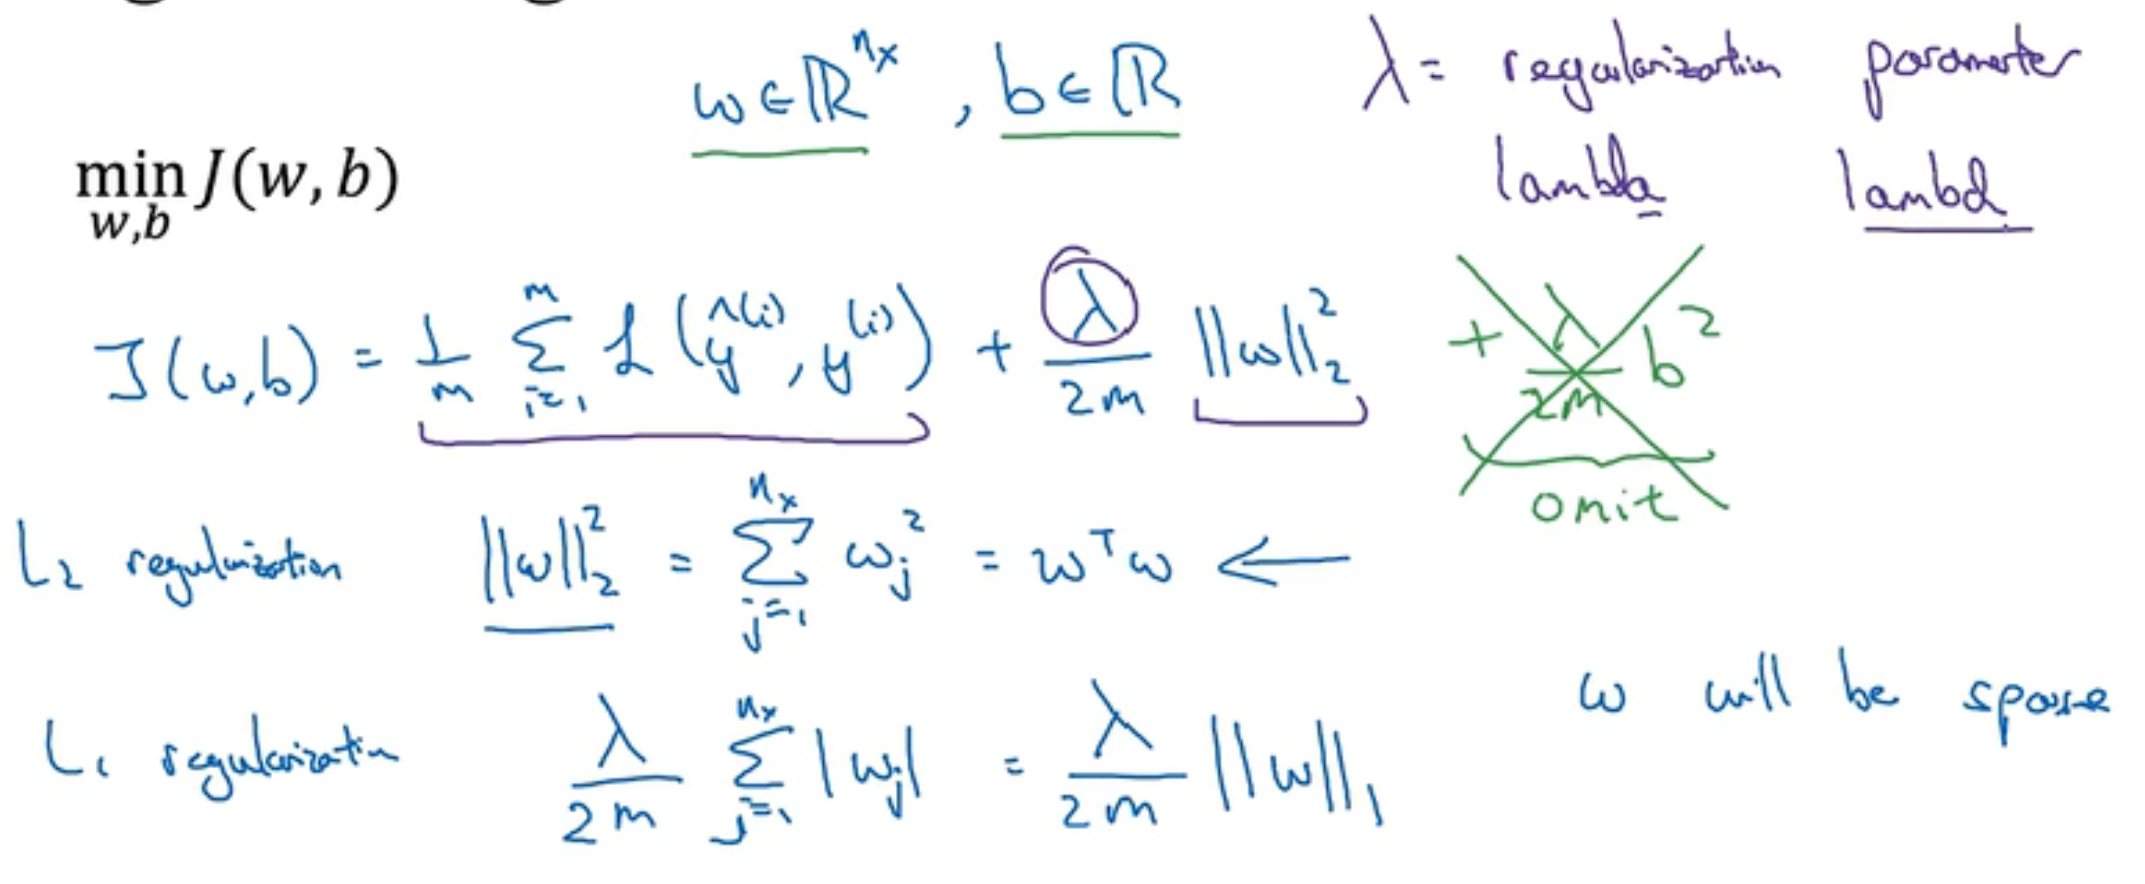 w ∈ ℝ^{n_x}, b ∈ ℝ
λ = regularization parameter
lambda lambd
min_{w,b} J(w, b)
J(w,b) = 1/m Σ_{i=1}^{m} L(ŷ^{(i)}, y^{(i)}) + λ/2m ||w||_2^2 + λ/2m b^2
omit
L_2 regularization ||w||_2^2 = Σ_{j=1}^{n_x} w_j^2 = w^T w ←
L_1 regularization λ/2m Σ_{j=1}^{n_x} |w_j| = λ/2m ||w||_1 w will be sparse